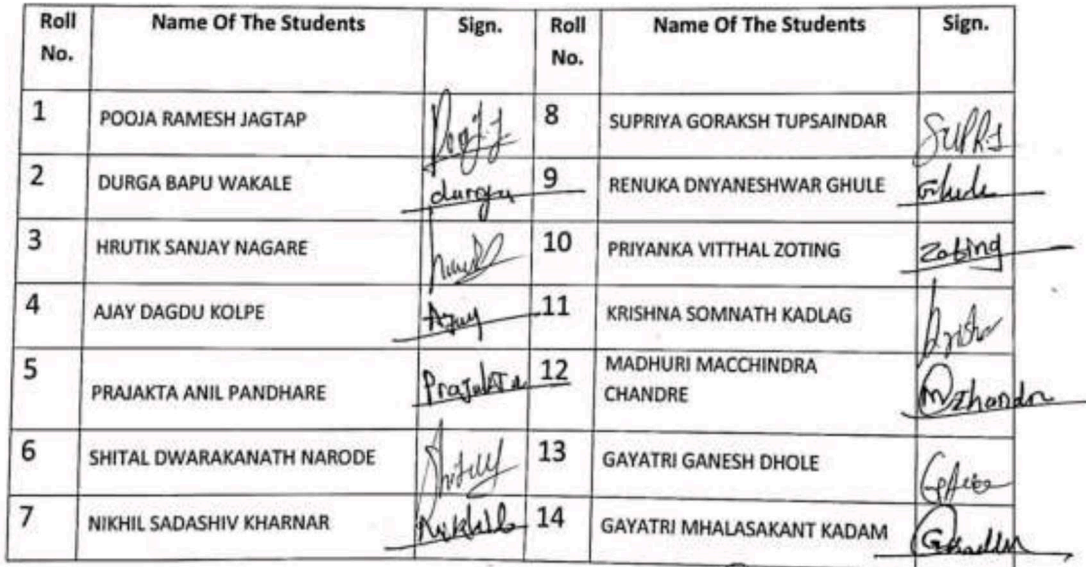 Roll No. Name Of The Students Sign. Roll No. Name Of The Students Sign.
1 POOJA RAMESH JAGTAP 8 SUPRIYA GORAKSH TUPSAINDAR
2 DURGA BAPU WAKALE durga 9 RENUKA DNYANESHWAR GHULE Ghule
3 HRUTIK SANJAY NAGARE 10 PRIYANKA VITTHAL ZOTING Zoting
4 AJAY DAGDU KOLPE Ajay 11 KRISHNA SOMNATH KADLAG
5 PRAJAKTA ANIL PANDHARE Prajakta 12 MADHURI MACCHINDRA
CHANDRE
6 SHITAL DWARAKANATH NARODE 13 GAYATRI GANESH DHOLE
7 NIKHIL SADASHIV KHARNAR 14 GAYATRI MHALASAKANT KADAM